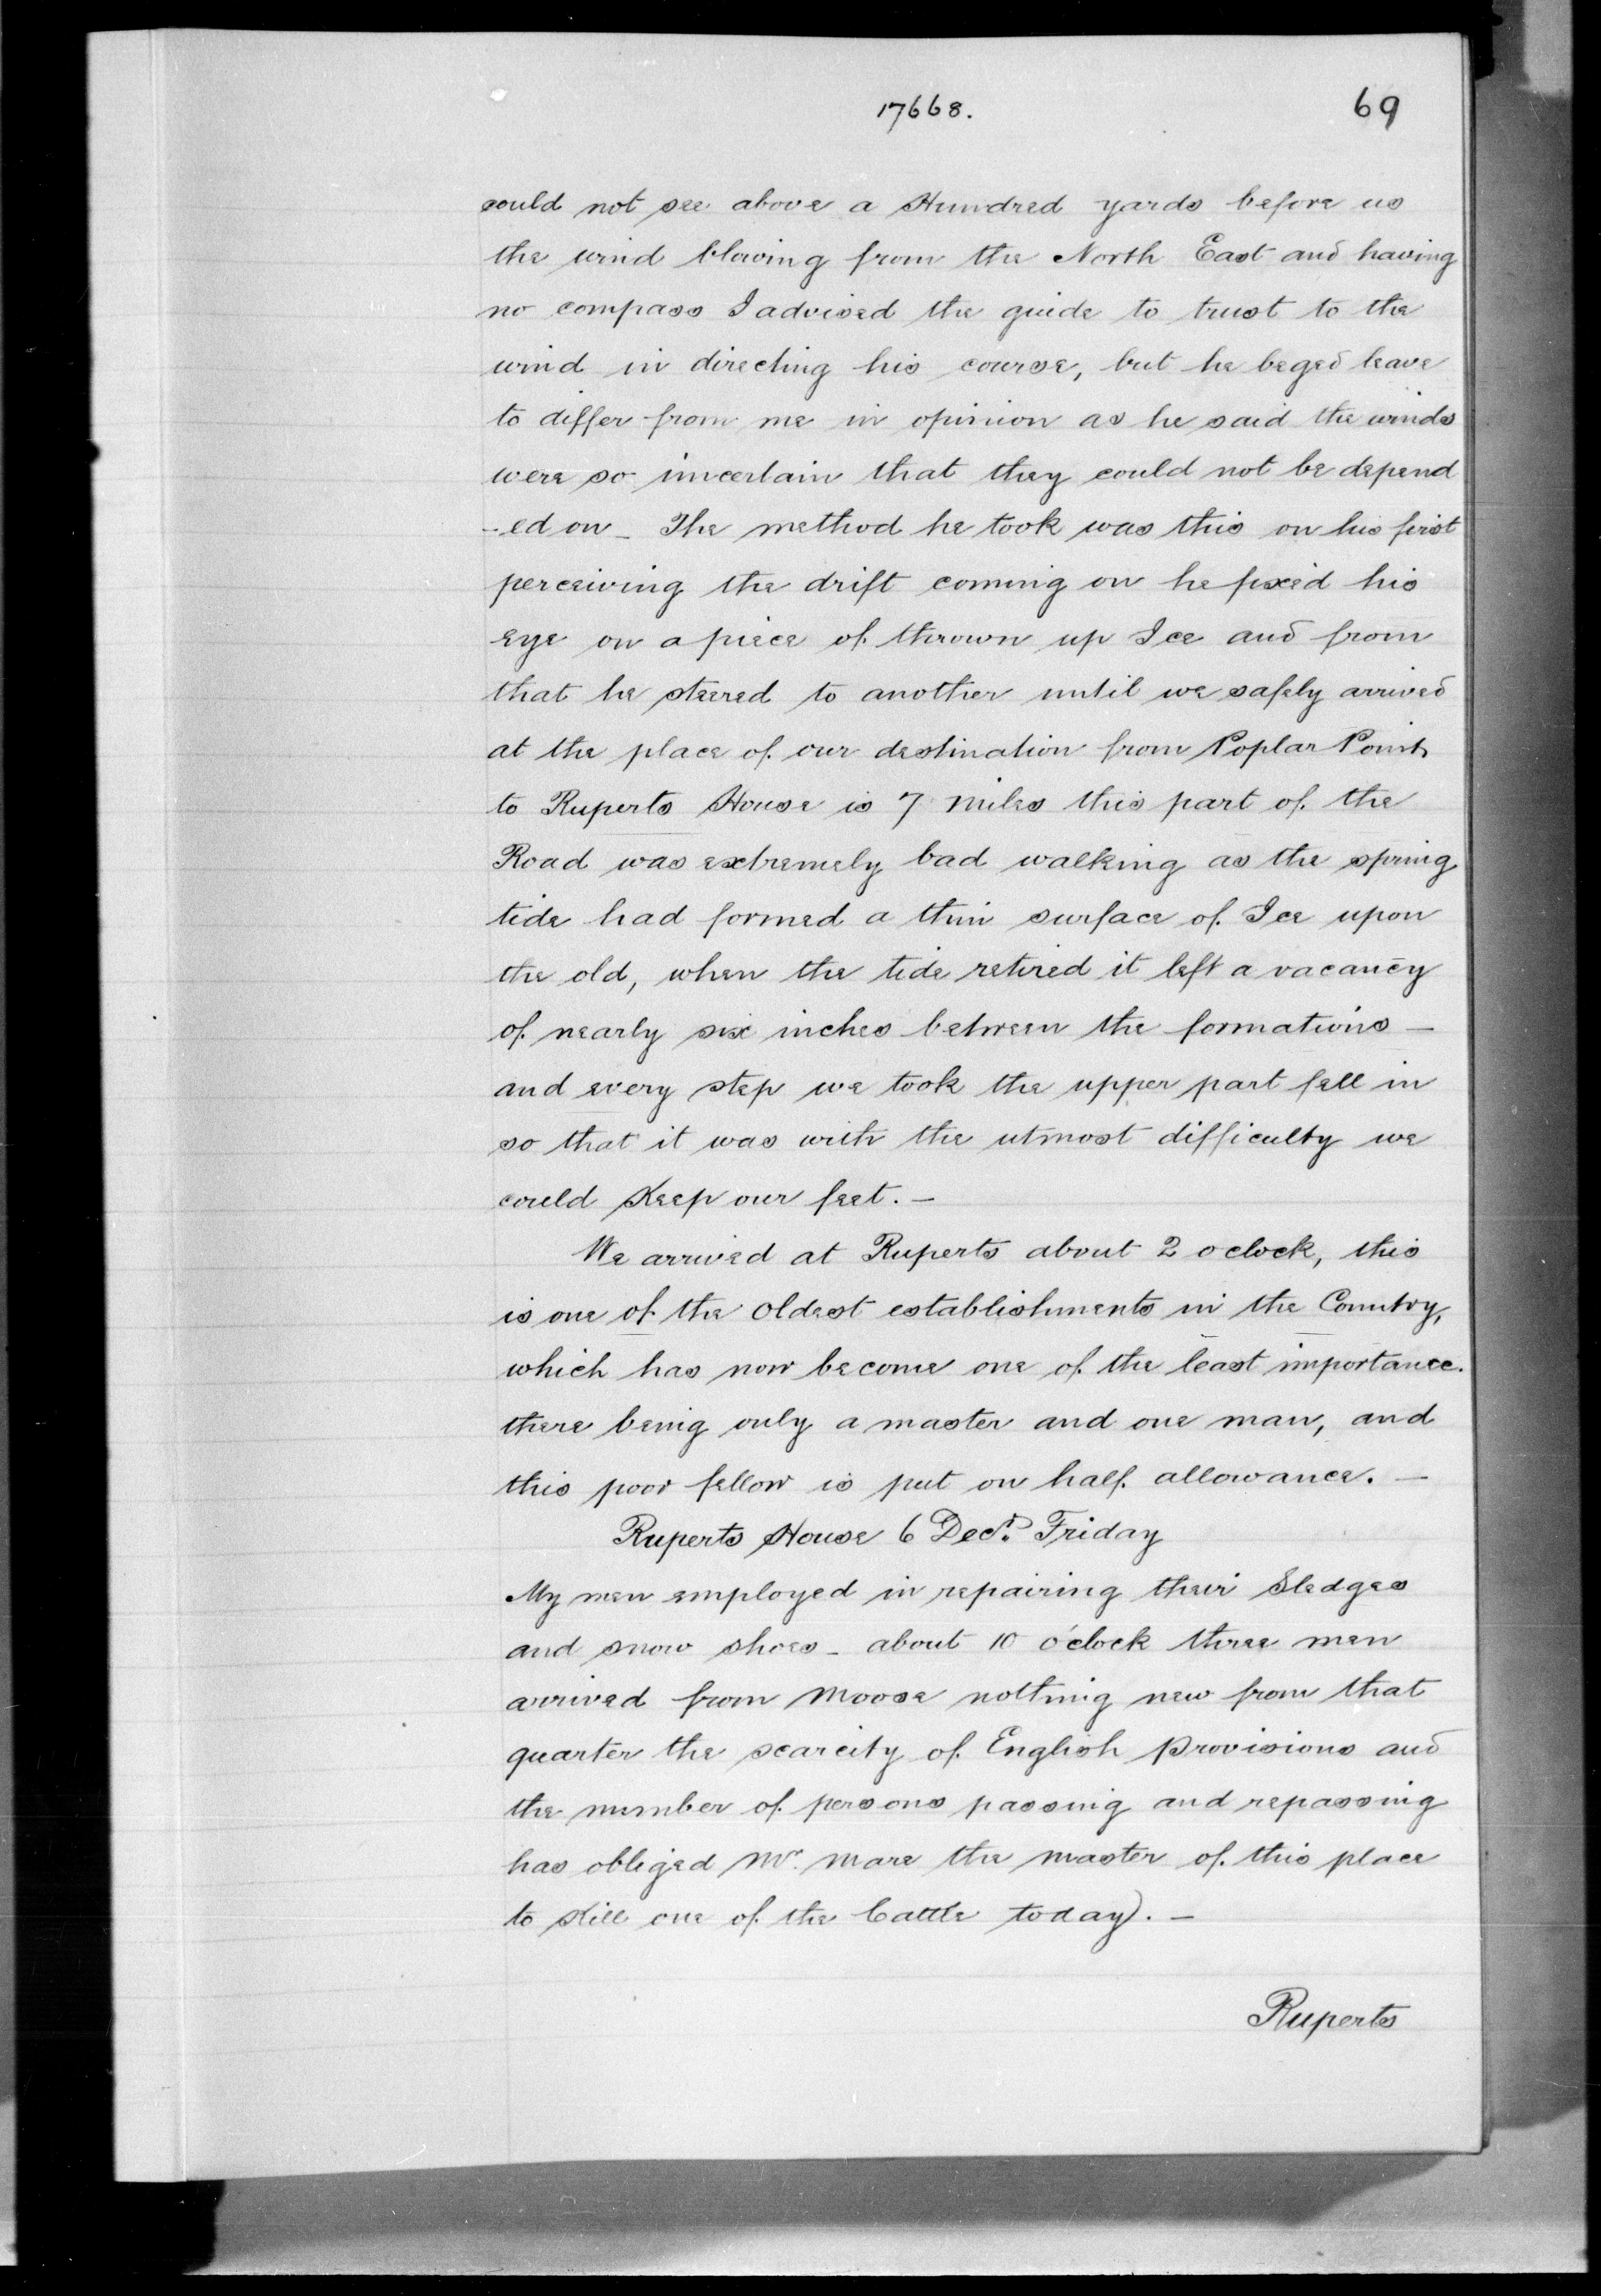 17668.
69
could not see above a Hundred yards before us
the wind blowing from the North East and having
no compass I advised the guide to trust to the
wind in directing his course, but he beged leave
to differ from me in opinion as he said the winds
were so uncertain that they could not be depend
-ed on - The method he took was this on his first
perceiving the drift coming on he fixed his
eye on a piece of thrown up Ice and from
that he steered to another until we safely arrived
at the place of our destination from Poplar Point
to Ruperts House is 7 miles this part of the
Road was extremely bad walking as the spring
tide had formed a thin surface of Ice upon
the old, when the tide retired it left a vacancy
of nearly six inches between the formations -
and every step we took the upper part fell in
so that it was with the utmost difficulty we
could Keep our feet. -
We arrived at Ruperts about 2 o clock, this
is one of the oldest establishments in the Country,
which has now become one of the least importance.
there being only a master and one man, and
this poor fellow is put on half allowance. -
Ruperts House 6 Decr. Friday
My men employed in repairing their Sledges
and snow shoes - about 10 o'clock three men
arrived from Moose nothing new from that
quarter the scarcity of English provisions and
the number of persons passing and repassing
has obliged Mr. Mare the master of this place
to Kill one of the Cattle today). -
Ruperts